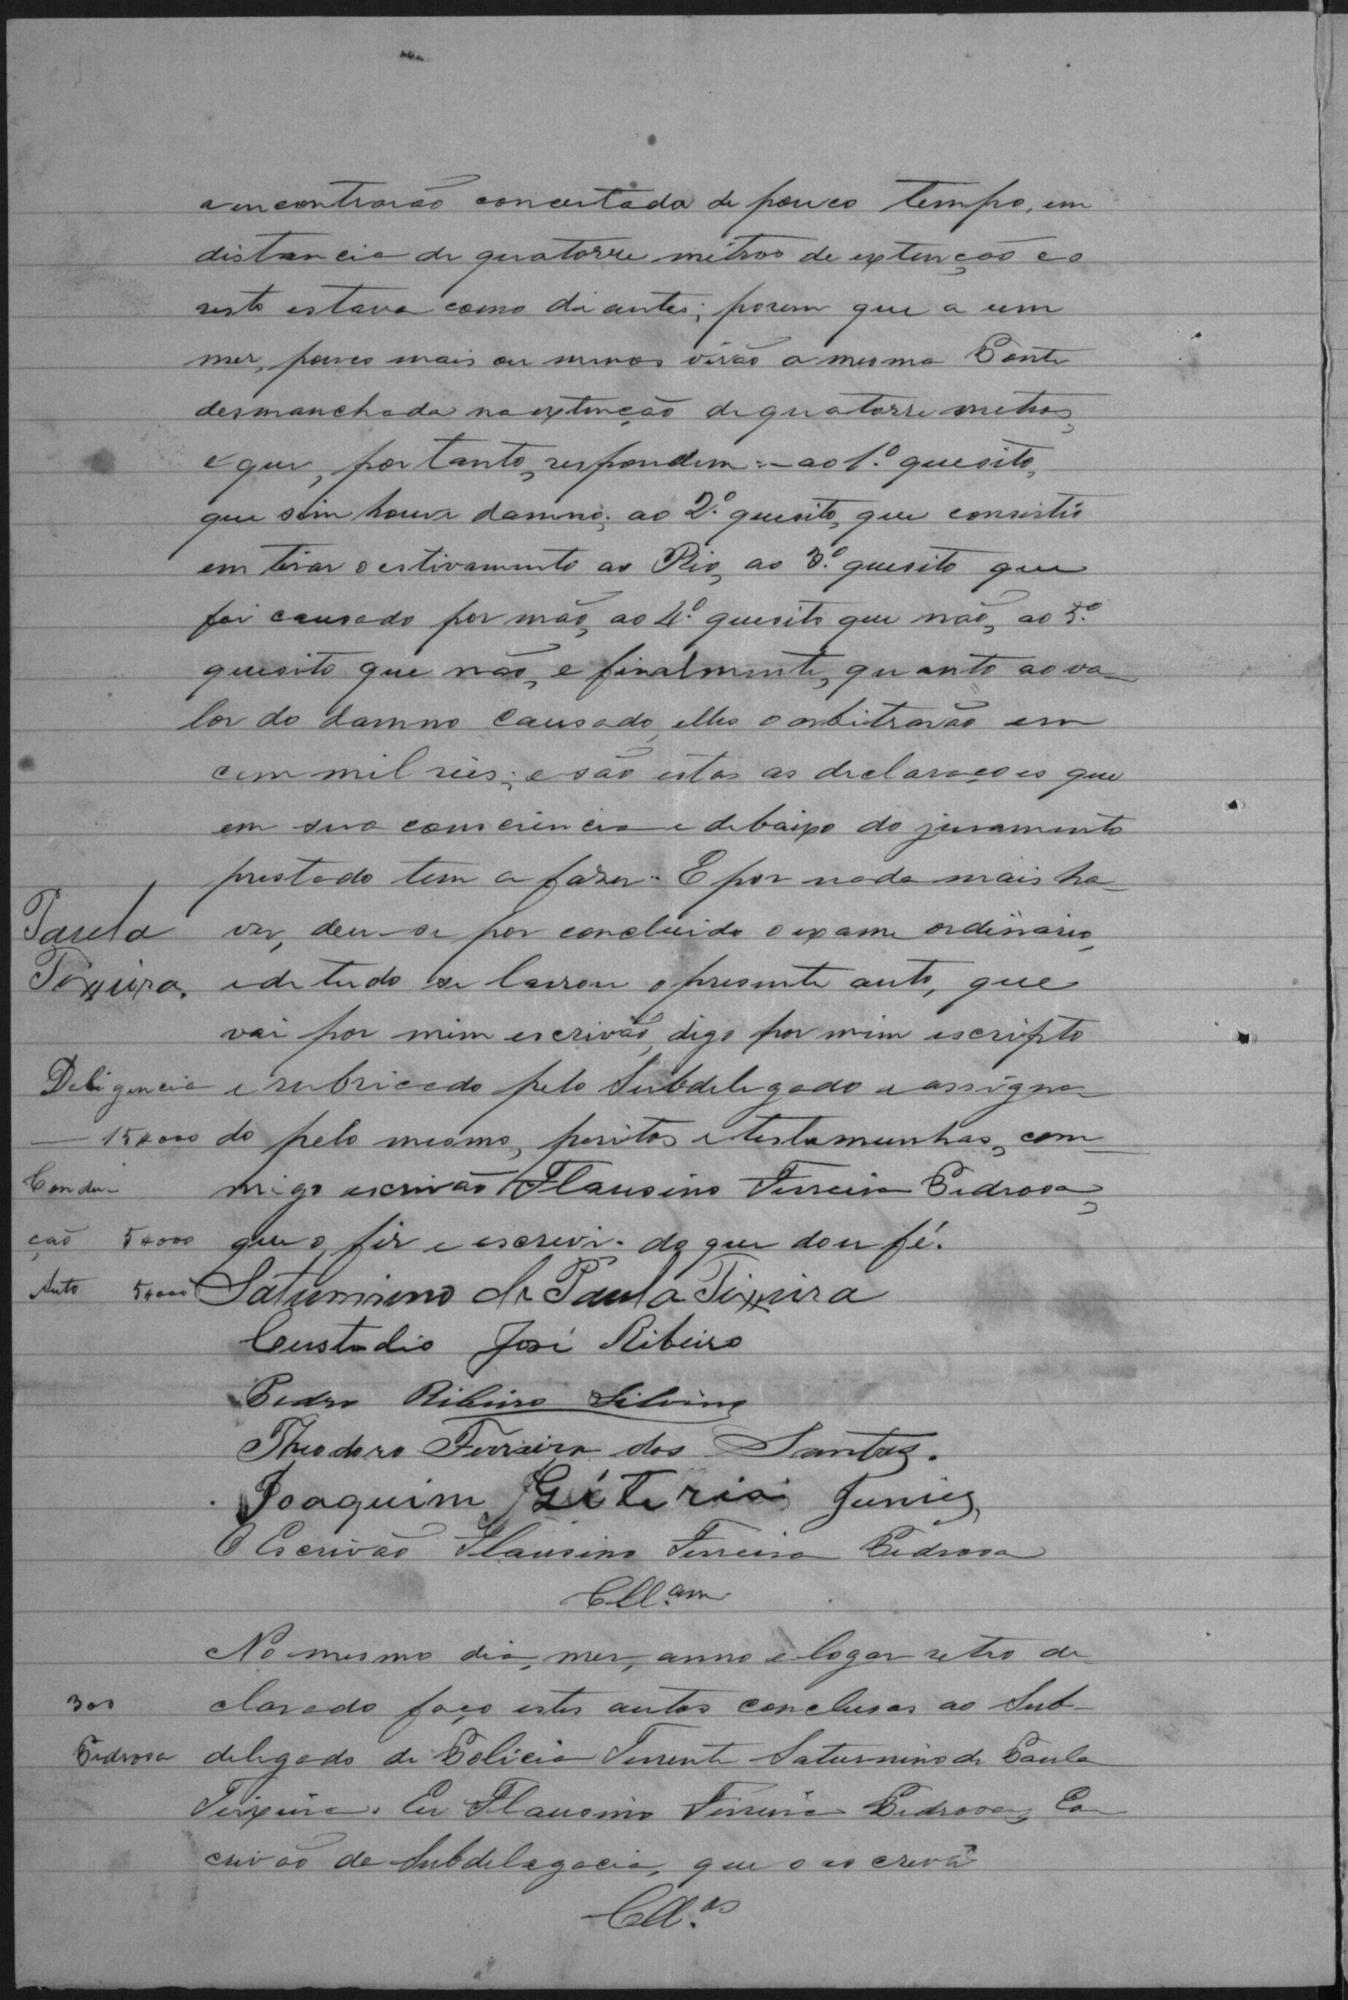 a encontrarão concertada de pouco tempo, em
distancia de quatorze metros de extenção e o
resto estava como di antes; porem que a um
mez, pouco mais ou menos virão a mesma Ponte
desmanchada na extenção de quatorze metros,
e que, por tanto, respondem :- ao 1.º quesito,
que sim houve damno; ao 2.º quesito, que consistio
em tirar o estivamento ao Rio, ao 3.º quesito que
foi causado por mão, ao 4.º quesito que não, ao 5.º
quesito que não, e finalmente, quanto ao va-
lor do damno causado, elles o arbitrarão em
cem mil reis; e são estas as declarações que
em sua consciencia e debaixo do juramento
prestado tem a fazer. E por nada mais ha-
ver, deu-se por concluido o exame ordinario,
Paula
Teixeira.
e de tudo se lavrou o presente auto, que
vai por mim escrivão, digo por mim escripto
Deligencia
e rubricado pelo Subdelegado e assigna-
— 15$000
do pelo mesmo, peritos e testemunhas, com-
Condu-
migo escrivão Flausino Ferreira Pedrosa,
ção 5$000
que o fiz e escrevi. do que dou fé.
Auto 5$000
Saturnino de Paula Teixeira
Custodio José Ribeiro
Pedro Ribeiro Silvino
Theodoro Ferreira dos Santos.
Joaquim Junior
O Escrivão Flausino Ferreira Pedrosa
Cll.am
No mesmo dia, mez, anno e logar retro de-
clarado faço estes autos conclusos ao Sub-
300
Pedrosa
delegado de Policia Tenente Saturnino de Paula
Teixeira. Eu Flausino Ferreira Pedrosa, Es-
crivão da Subdelegacia, que o escrevi
Cll.os